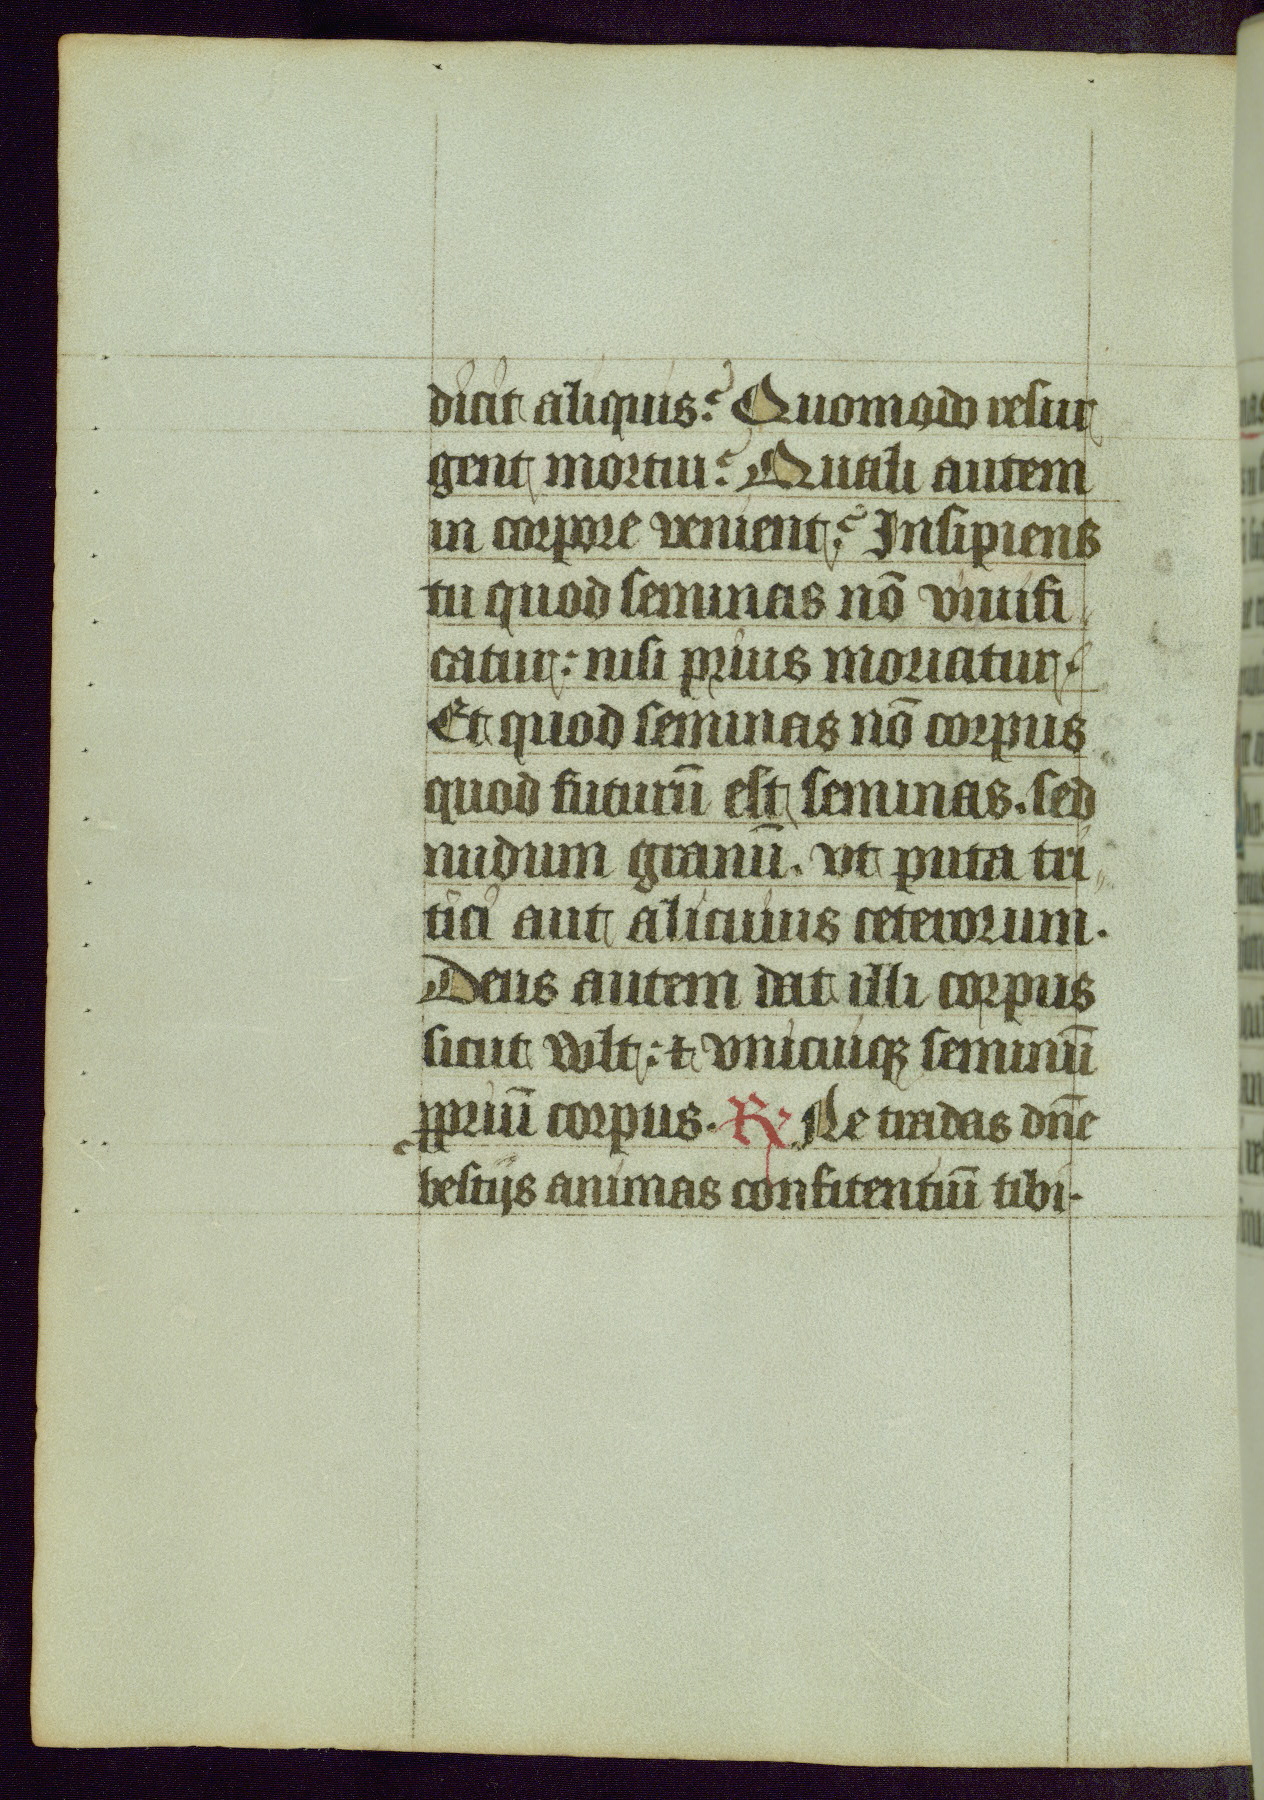 dicit aliquis? Quomodo resur
gent mortui? Quali autem
in corpore venient? Insipiens
tu quod seminas nō viuifi
catur: nisi prius moriatur.
Et quod seminas nō corpus
quod futurū est seminas. sed
nudum granū. vt puta tri
tici aut alicuius ceterorum.
Deus autem dat illi corpus
sicut vult: ⁊ vnicuiqꝫ seminū
ꝓpriū corpus. ℟ Ne tradas dn̄e
bestijs animas confitentiū tibi.